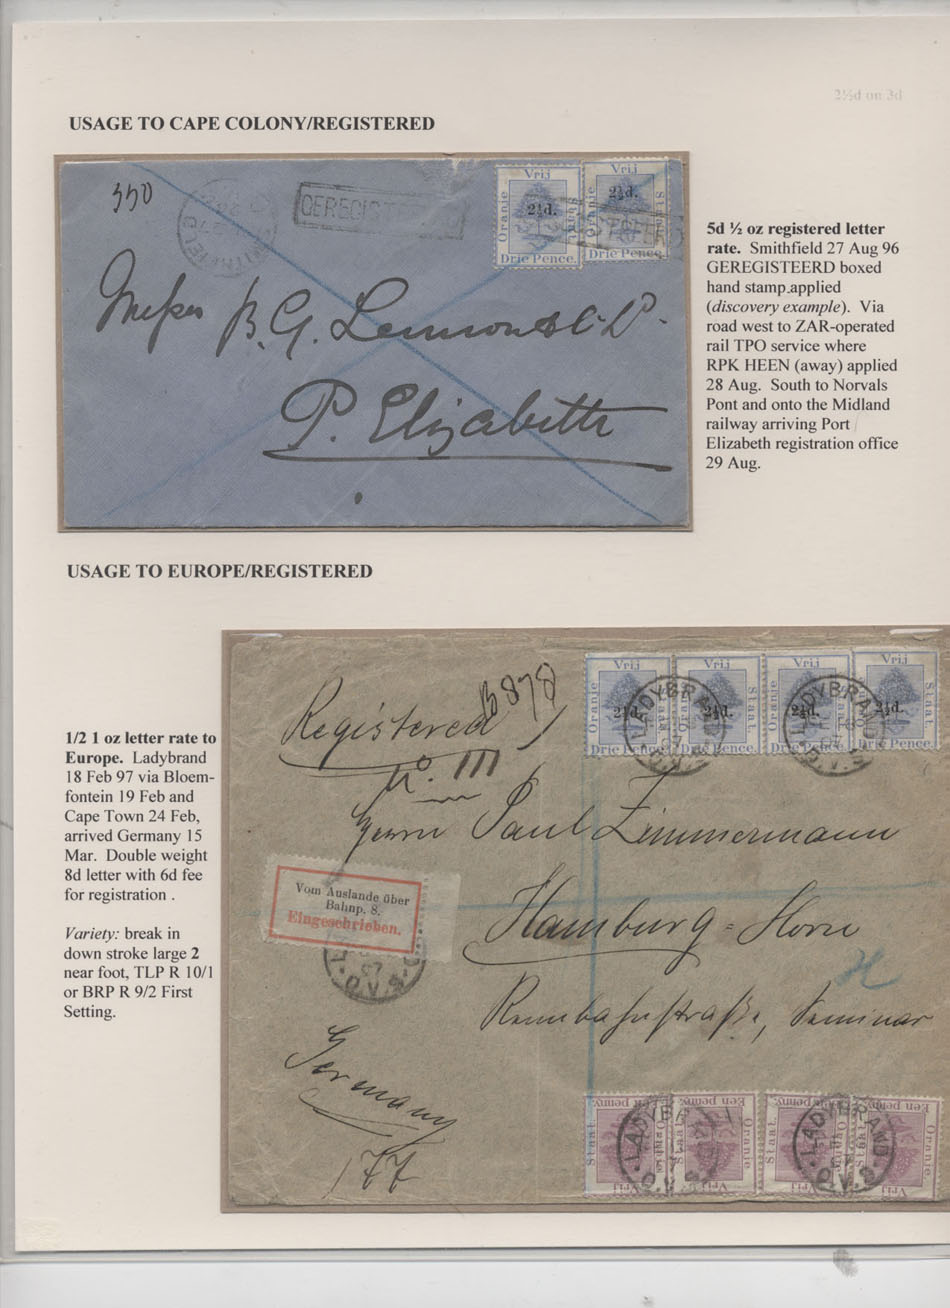 2½d on 3d
USAGE TO CAPE COLONY/REGISTERED
350
GEREGISTEERD
Vrij
Oranje
2½d.
Staat
Drie Pence.
Vrij
Oranje
2½d.
Staat
Messrs B. G. Lennon & Co
P. Elizabeth
5d ½ oz registered letter
rate. Smithfield 27 Aug 96
GEREGISTEERD boxed
hand stamp applied
(discovery example). Via
road west to ZAR-operated
rail TPO service where
RPK HEEN (away) applied
28 Aug. South to Norvals
Pont and onto the Midland
railway arriving Port
Elizabeth registration office
29 Aug.
USAGE TO EUROPE/REGISTERED
1/2 1 oz letter rate to
Europe. Ladybrand
18 Feb 97 via Bloem-
fontein 19 Feb and
Cape Town 24 Feb,
arrived Germany 15
Mar. Double weight
8d letter with 6d fee
for registration .
Variety: break in
down stroke large 2
near foot, TLP R 10/1
or BRP R 9/2 First
Setting.
Registered
B878
No. 111
Vrij Vrij Vrij Vrij
Oranje
2½d. 2½d. 2½d. 2½d.
Staat.
Drie Pence. Drie Pence. Drie Pence. Drie Pence.
LADYBRAND
O.V.S.
LADYBRAND
O.V.S.
Herrn Paul Zimmermann
Hamburg = Horn
Rennbahnstraße, Seminar
Vom Auslande über
Bahnp. 8.
Eingeschrieben.
97
O.V.S.
Germany
177
Een penny. Een penny. Een penny. Een penny.
Staat Oranje
Vrij Vrij Vrij Vrij
LADYBRAND
O.V.S.
LADYBRAND
O.V.S.